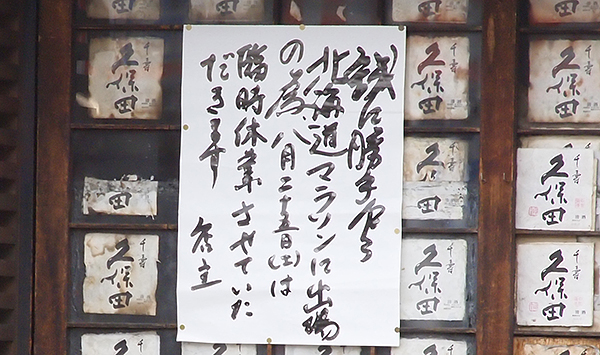 誠に勝手乍ら
北海道マラソンに出場
の為、八月二十五日(土)は
臨時休業させていた
だきます
店主
千寿
久保田
千寿
久保田
千寿
久保田
千寿
久保田
千寿
久保田
千寿
久保田
千寿
久保田
千寿
久保田